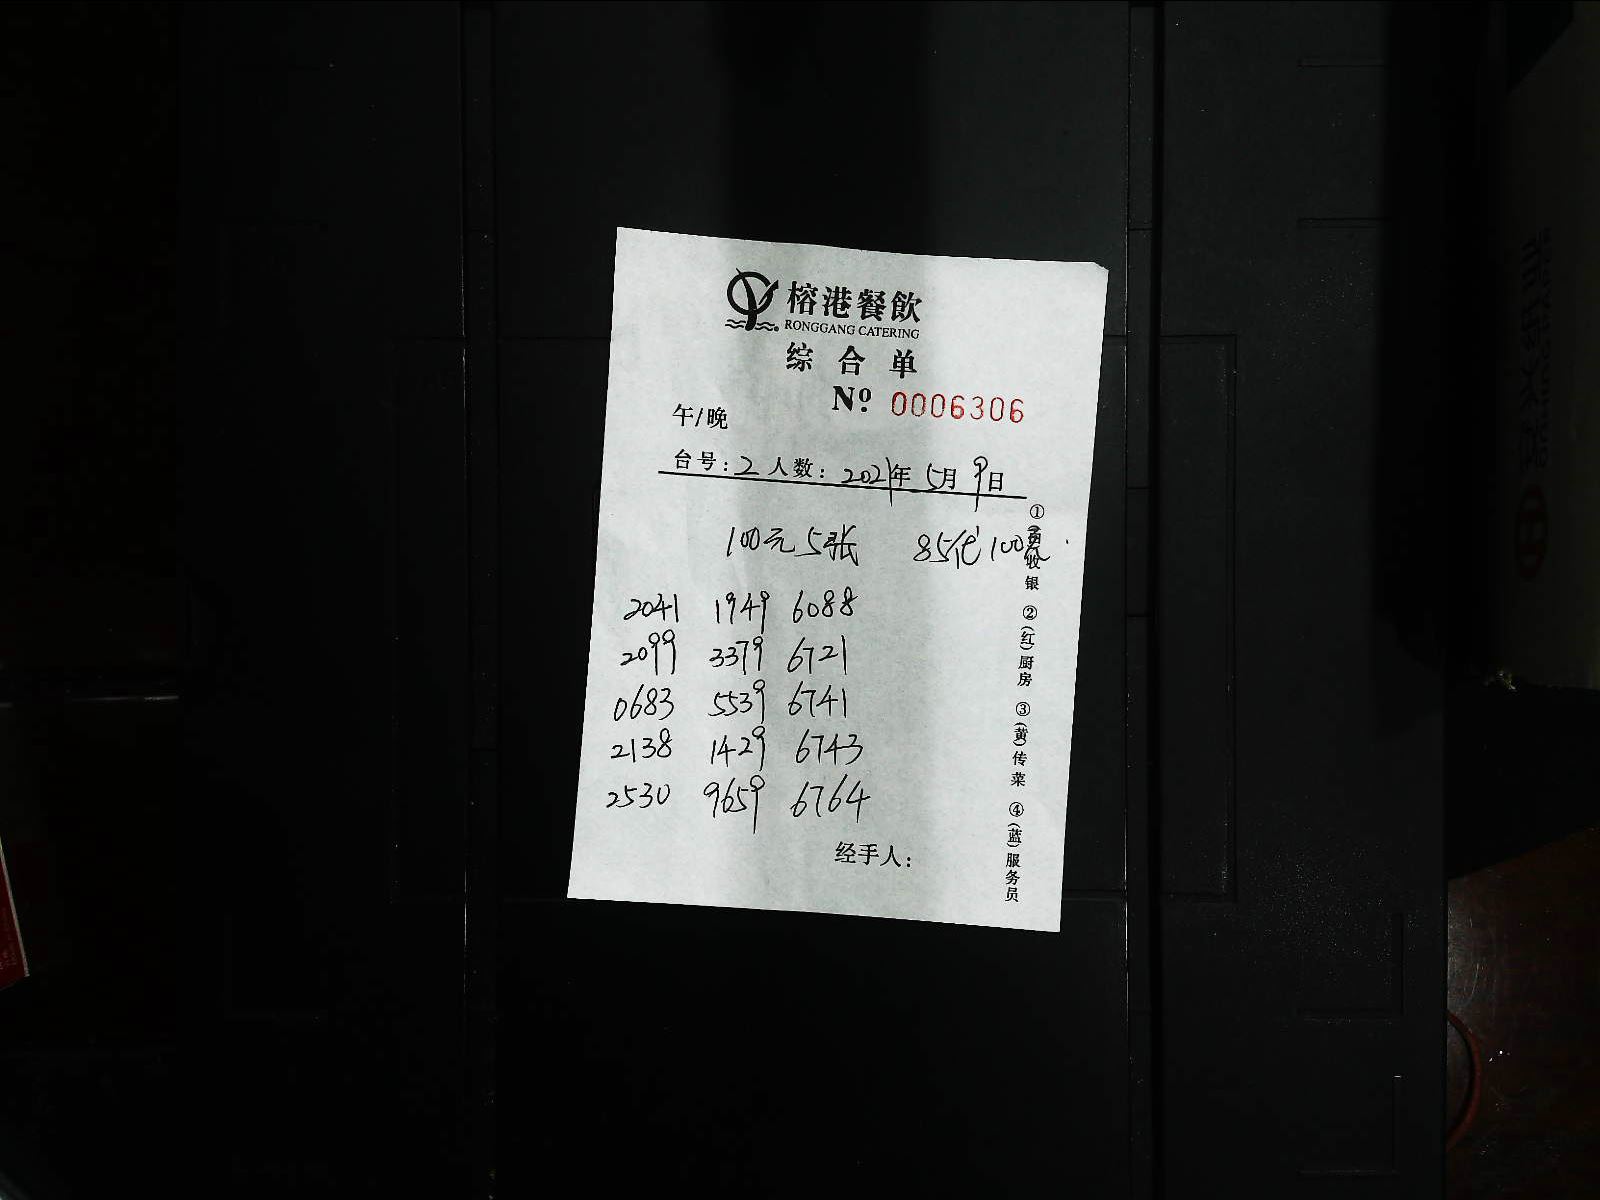 榕港餐飲
RONGGANG CATERING
综合单
Nº: 0006306
午/晚
台号: 2 人数: 2021年 5月 9日
100元 5张 85代100元
2041 1949 6088
2099 3379 6721
0683 5539 6741
2138 1429 6743
2530 9659 6764
经手人:
①(白)收银 ②(红)厨房 ③(黄)传菜 ④(蓝)服务员